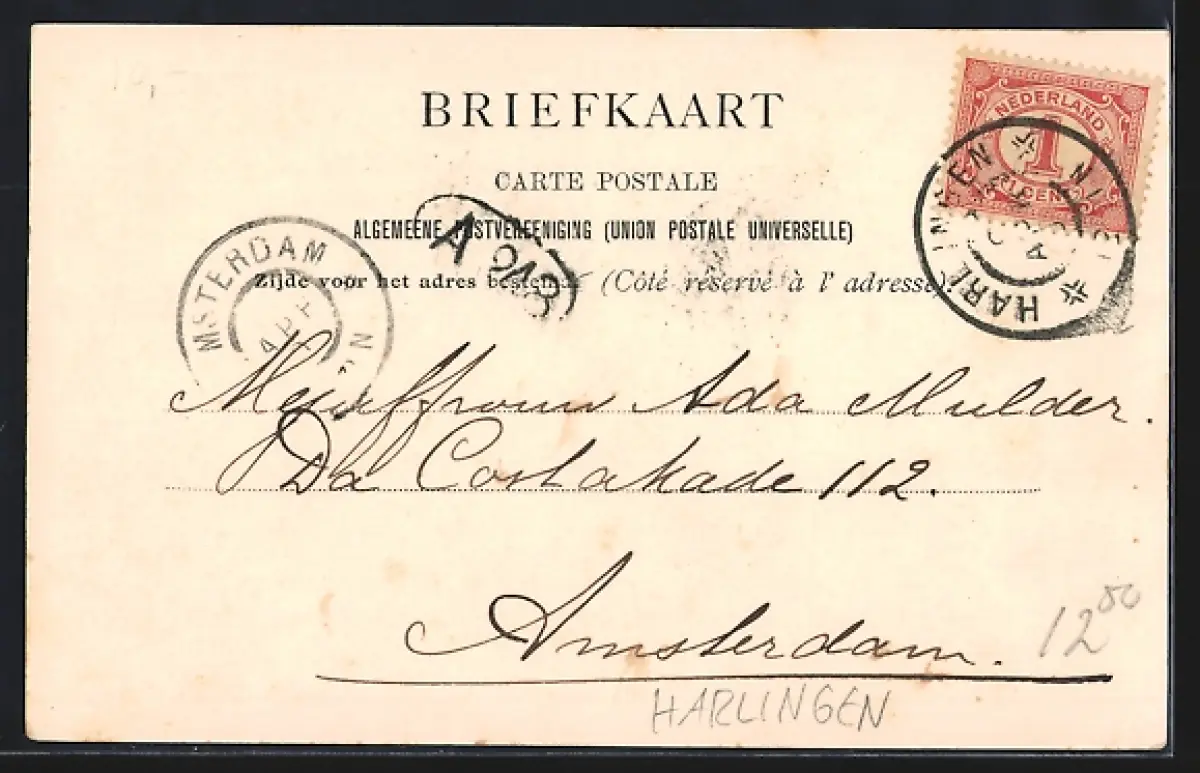 BRIEFKAART
CARTE POSTALE
ALGEMEENE POSTVEREENIGING (UNION POSTALE UNIVERSELLE)
Zijde voor het adres bestemd (Côté réservé à l'adresse).
NEDERLAND
1
HARLINGEN
AMSTERDAM
APR
Mejuffrouw Ada Mulder.
Da Costakade 112.
Amsterdam.
12 00
HARLINGEN